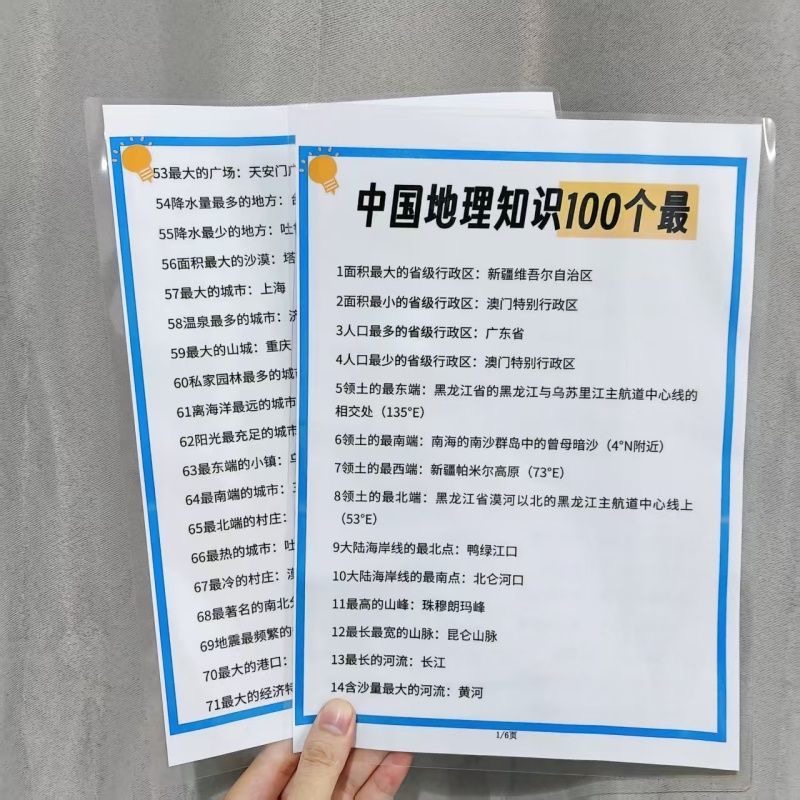 53最大的广场：天安门广
54降水量最多的地方：
55降水最少的地方：吐
56面积最大的沙漠：塔
57最大的城市：上海
58温泉最多的城市：
59最大的山城：重庆
60私家园林最多的城市
61离海洋最远的城市
62阳光最充足的城市
63最东端的小镇：
64最南端的城市：
65最北端的村庄：
66最热的城市：吐
67最冷的村庄：
68最著名的南北分
69地震最频繁的
70最大的港口：
71最大的经济特
中国地理知识100个最
1面积最大的省级行政区：新疆维吾尔自治区
2面积最小的省级行政区：澳门特别行政区
3人口最多的省级行政区：广东省
4人口最少的省级行政区：澳门特别行政区
5领土的最东端：黑龙江省的黑龙江与乌苏里江主航道中心线的
相交处（135°E）
6领土的最南端：南海的南沙群岛中的曾母暗沙（4°N附近）
7领土的最西端：新疆帕米尔高原（73°E）
8领土的最北端：黑龙江省漠河以北的黑龙江主航道中心线上
（53°E）
9大陆海岸线的最北点：鸭绿江口
10大陆海岸线的最南点：北仑河口
11最高的山峰：珠穆朗玛峰
12最长最宽的山脉：昆仑山脉
13最长的河流：长江
14含沙量最大的河流：黄河
1/6页